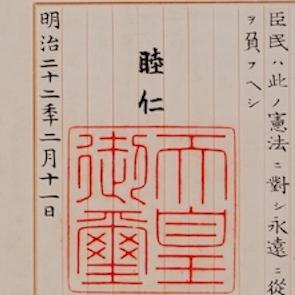 臣民ハ此ノ憲法ニ對シ永遠ニ從
ヲ負フヘシ
睦仁
天皇
御璽
明治二十二年二月十一日